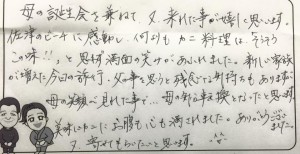 母の誕生会を兼ねて、又、来れた事が嬉しく思います。
のビーチに感動し、何よりもカニ料理は、そうそう
この味!!、と思わず満面の笑みがあふれました。新しい家族
が増えた今回の旅行、父の事を思うと残念でお射行もありますが
母の笑顔が見れた事で…母の気分転換となったと思います。
美味しいカニにお腹も心も満たされました。ありがとうござい
ました。
又、寄せてもらいたいと思います。^^